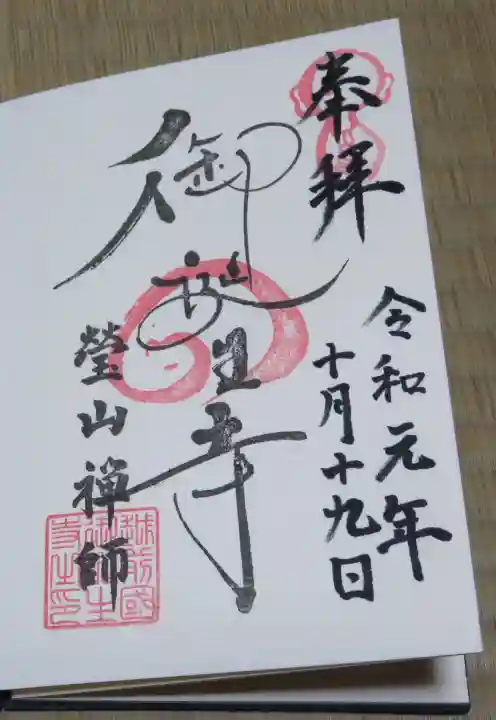 奉拝
令和元年
十月十九日
御誕生寺
瑩山禅師
越前國
御誕生
寺之印